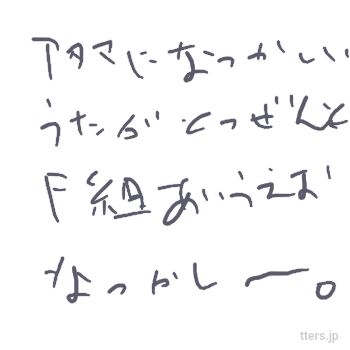 アタマになつかしい
うたがとつぜんと
F組あいうえお
なつかしー。
tters.jp